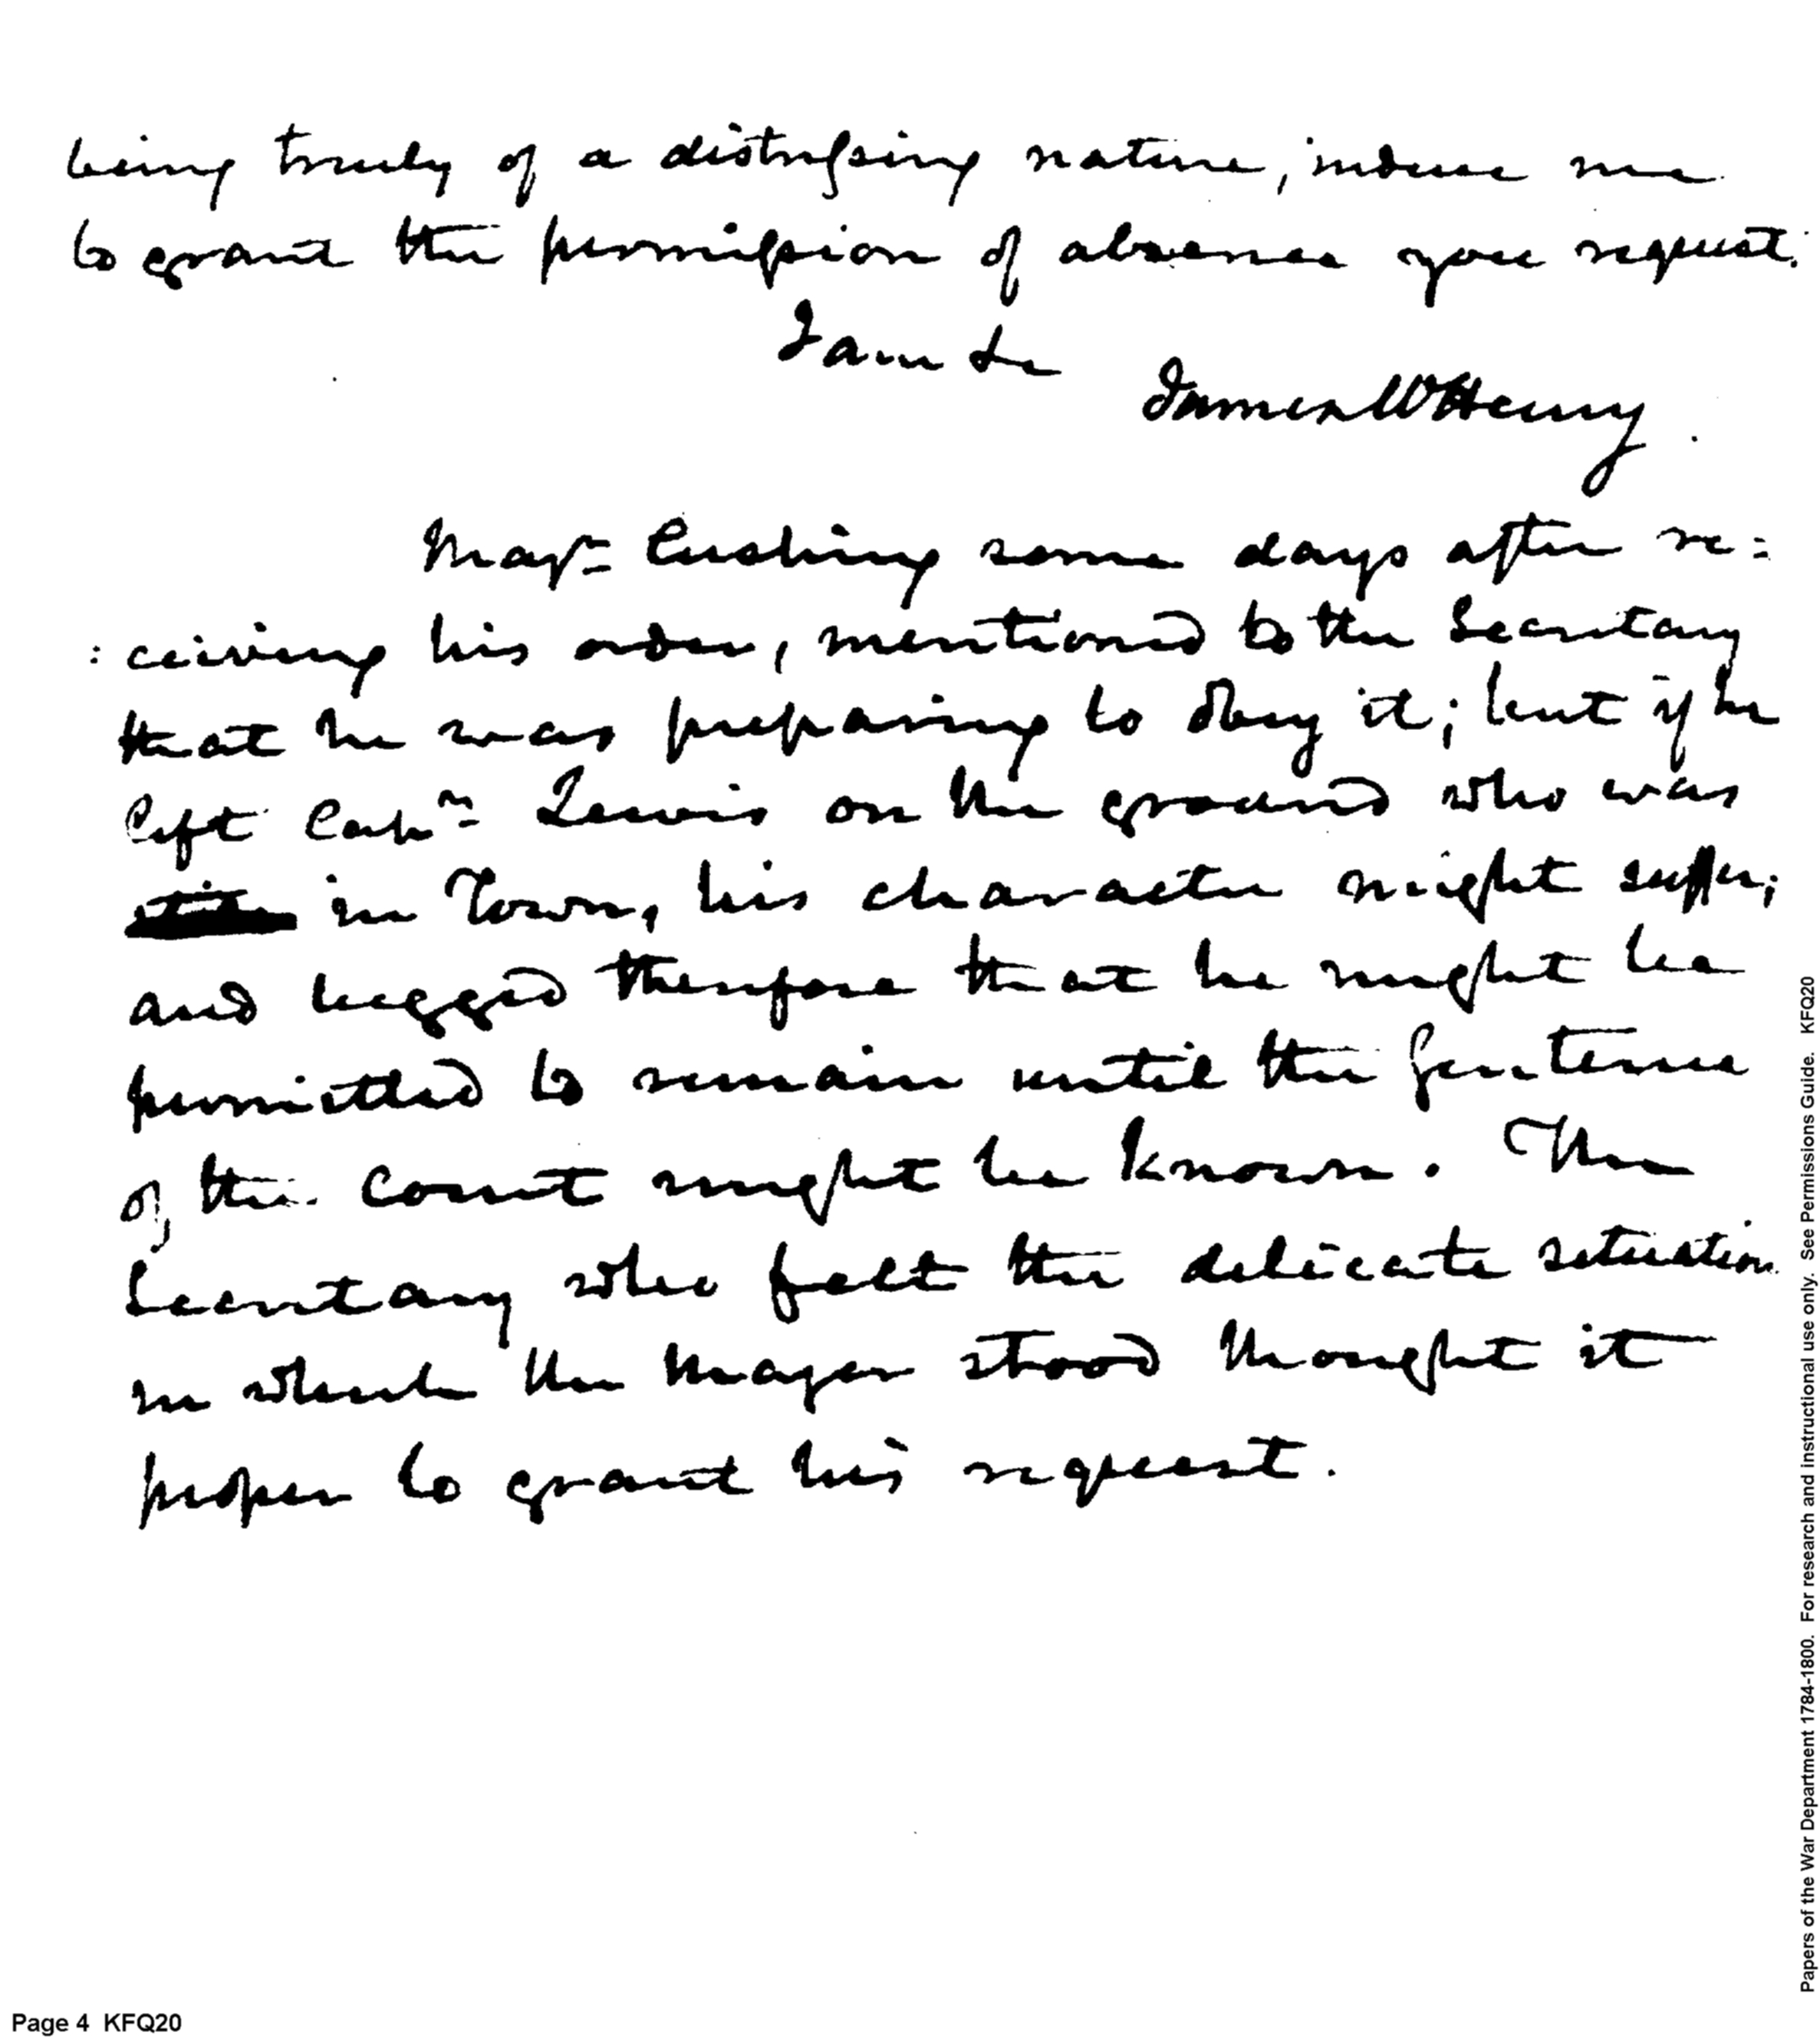 being truly of a distressing nature, induce me
to grant the permission of absence you request.
I am &c
James McHenry.
Majr. Cushing some days after re=
:ceiving his order, mentioned to the Secretary
that he was preparing to obey it; but if he
left Capn. Lewis on the ground who was
in Town, his character might suffer;
and begged therefore that he might be
permitted to remain until the sentence
of the Court might be known. The
Secretary who felt the delicate situation
in which the Major stood thought it
proper to grant his request.
Papers of the War Department 1784-1800. For research and instructional use only. See Permissions Guide. KFQ20
Page 4 KFQ20